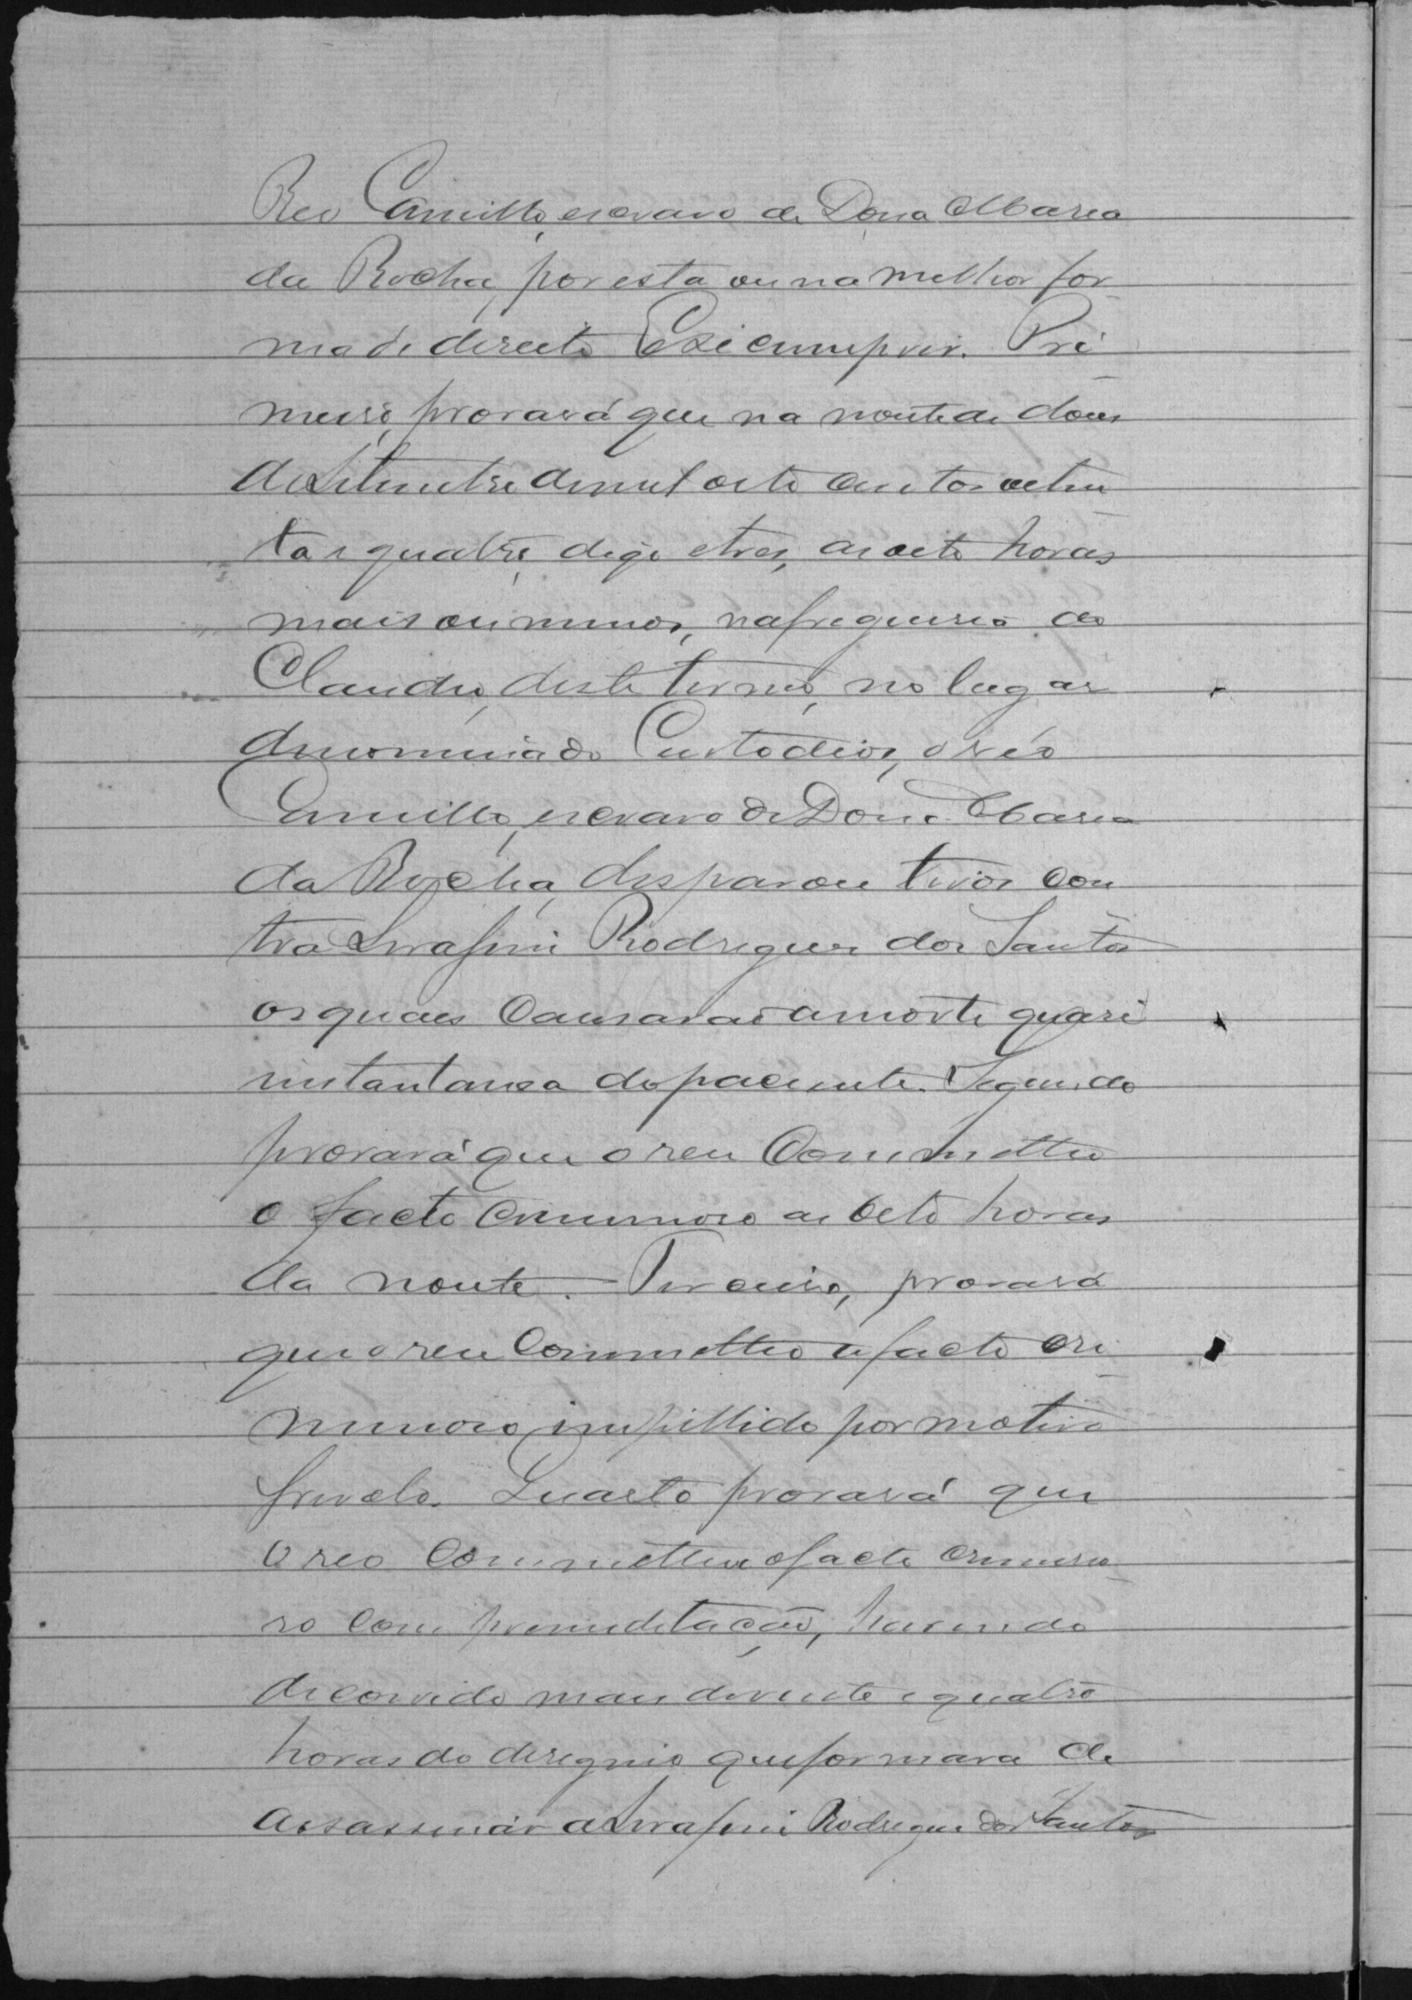 Reo Camillo, escravo de Dona Maria
da Rocha, por esta ou na melhor for-
ma de direito E. se cumprir. Pri-
meiro, provará que na noute de dous
de Setembro de mil oito centos oiten-
ta e quatro, digo e tres, as oito horas
mais ou menos, na freguesia do
Claudio, deste termo, no lugar
denominado Custodios, o réo
Camillo, escravo de Dona Maria
da Rocha, disparou tiros con
tra Serafim Rodrigues dos Santos
os quaes causarão a morte quasi
instantanea do paciente. Segundo
provará que o reu commetteu
o facto criminoso as oito horas
da noute. Terceiro, provará
que o reu commetteo o facto cri-
minoso impellido por motivo
frivolo. Quarto provará que
o reo commetteu o facto crimino-
so com premeditação, havendo
decorrido mais de vinte e quatro
horas do designio que formara de
assassinar a Serafim Rodrigues dos Santos